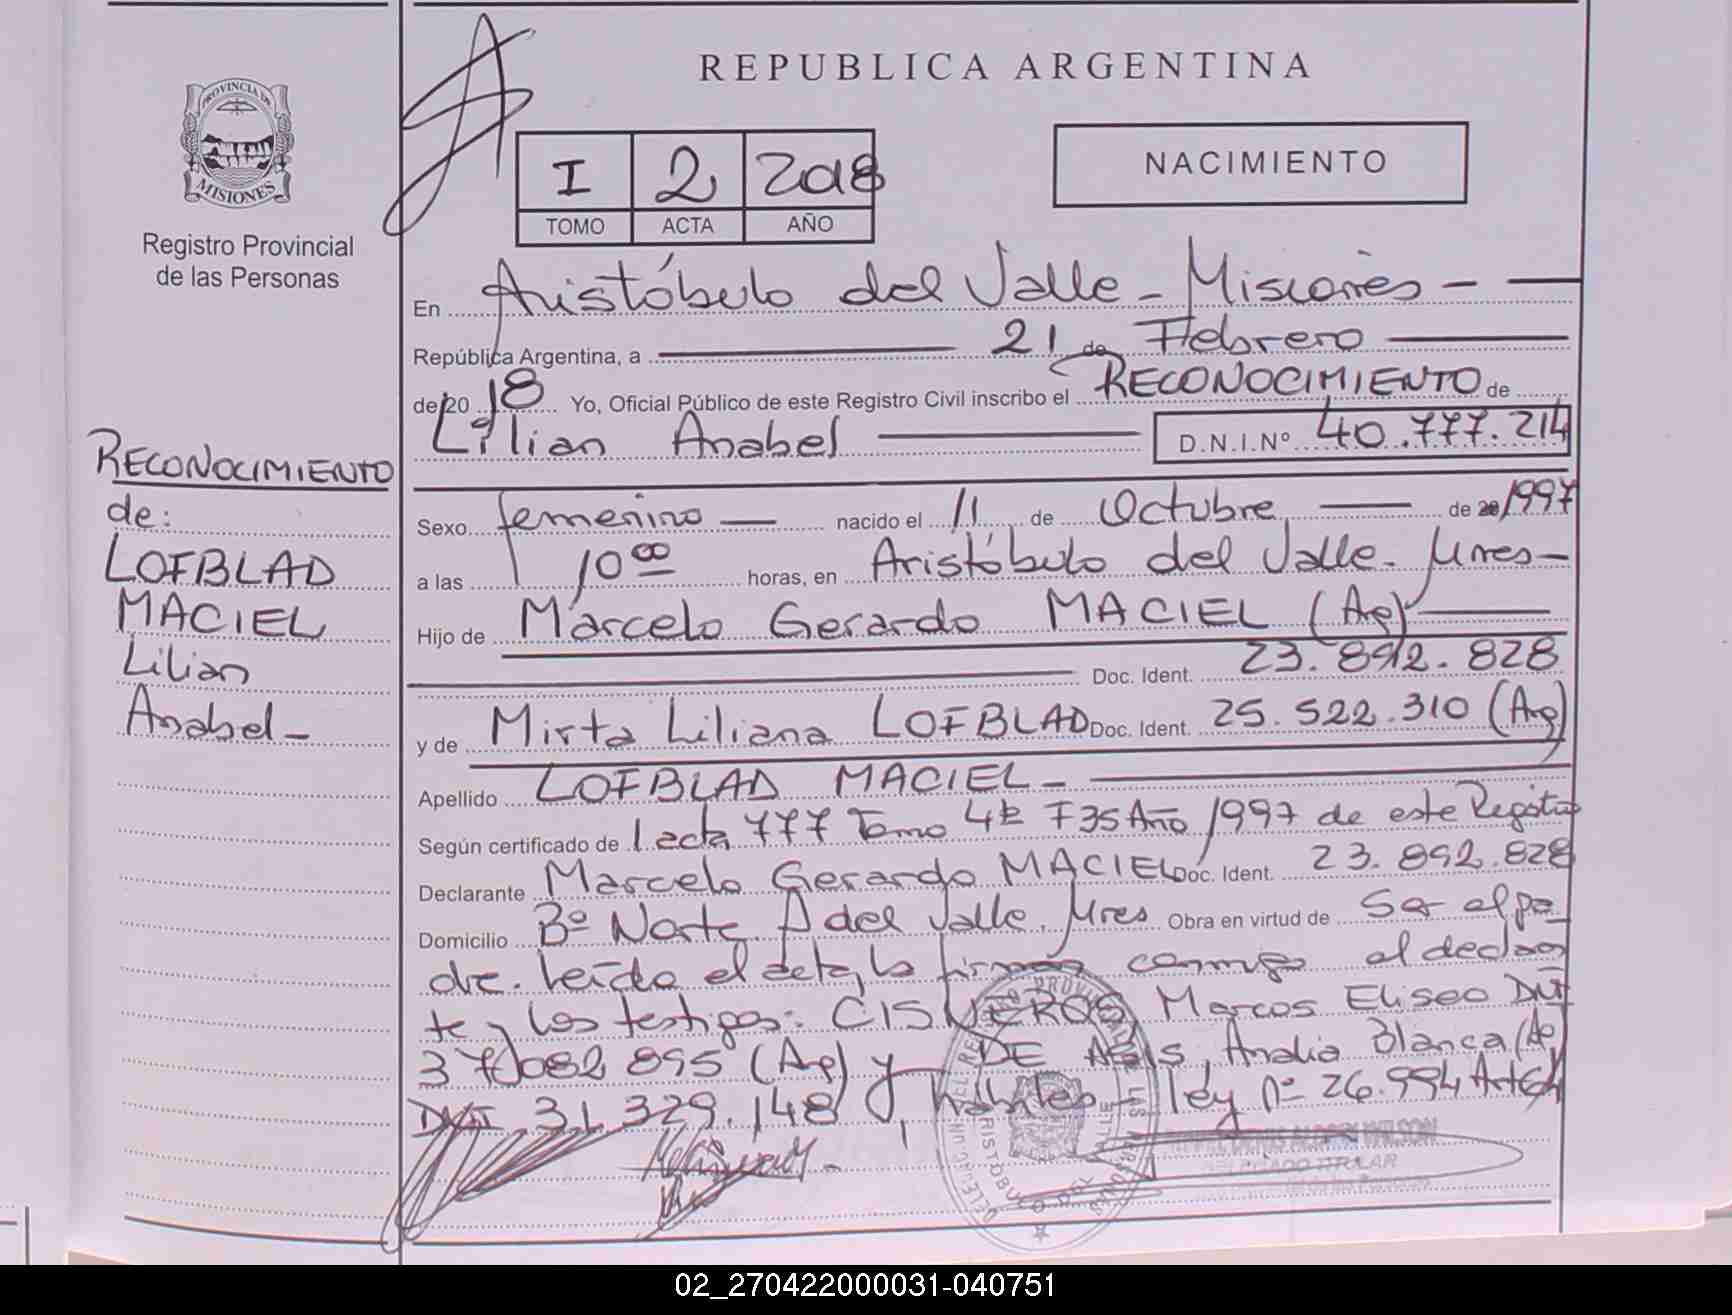 REPUBLICA ARGENTINA
PROVINCIA DE
MISIONES
Registro Provincial
de las Personas
I 2 2018
TOMO ACTA AÑO
NACIMIENTO
En Aristóbulo del Valle - Misiones -
República Argentina, a 21 de Febrero
de 20 18 Yo, Oficial Público de este Registro Civil inscribo el RECONOCIMIENTO de
Lilian Anabel D.N.I.Nº 40.777.214
Sexo femenino nacido el 11 de Octubre de 1997
a las 10 00 horas, en Aristóbulo del Valle - Mnes -
Hijo de Marcelo Gerardo MACIEL (Arg)
Doc. Ident. 23.892.828
y de Mirta Liliana LOFBLAD Doc. Ident. 25.522.310 (Arg)
Apellido LOFBLAD MACIEL -
Según certificado de acta 777 Tomo 4 F 35 Año 1997 de este Registro
Declarante Marcelo Gerardo MACIEL Doc. Ident. 23.892.828
Domicilio Bº Norte A del Valle, Mnes Obra en virtud de Ser el pa-
dre. Leída el acta, la firman conmigo el declaran
te y los testigos: CISNEROS Marcos Eliseo DNI
37.082.895 (Arg) y DE Analia Blanca (Arg
DNI 31.329.148, hábiles - ley nº 26.994 Art 64
DELEGADO TITULAR
RECONOCIMIENTO
de:
LOFBLAD
MACIEL
Lilian
Anabel -
02_270422000031-040751